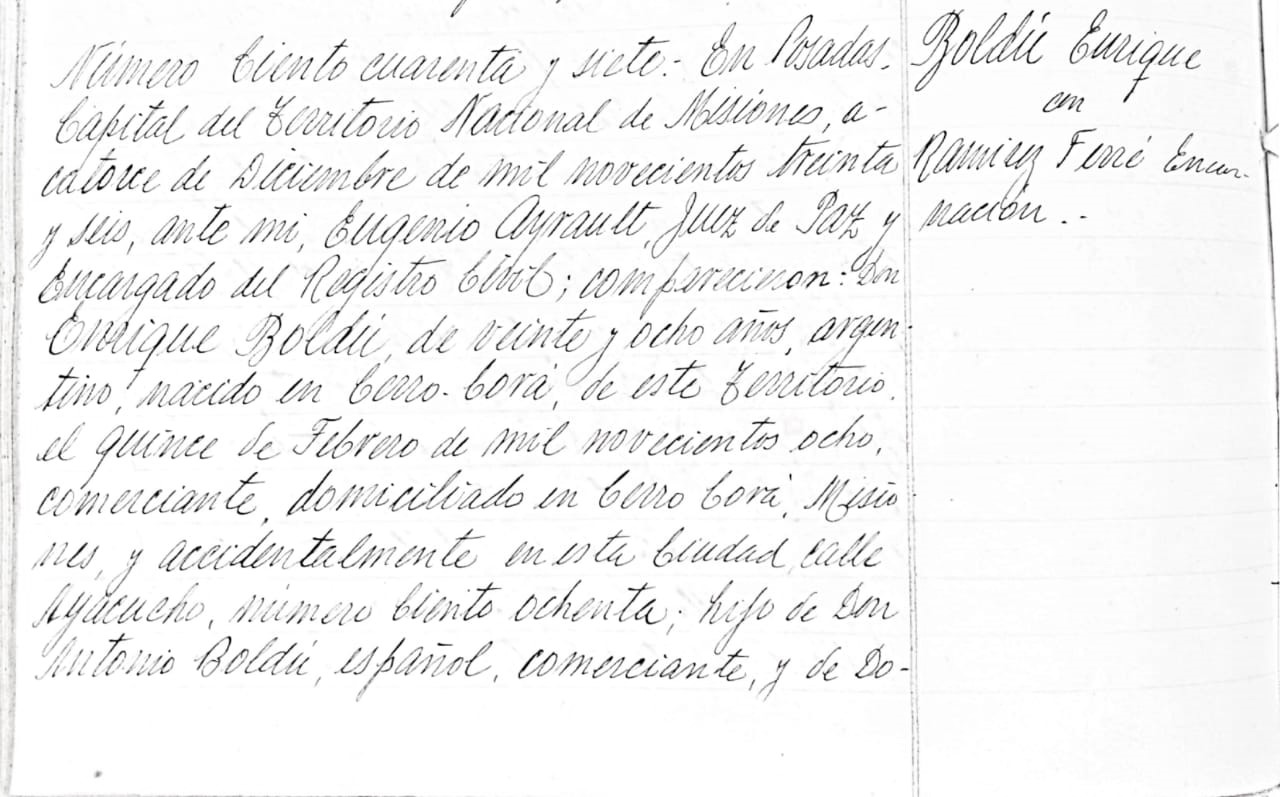 Número Ciento cuarenta y siete.- En Posadas.
Capital del Territorio Nacional de Misiones, a-
catorce de Diciembre de mil novecientos treinta
y seis, ante mi, Eugenio Ayrault, Juez de Paz y
Encargado del Registro Civil; comparecieron: Don
Enrique Boldú, de veinte y ocho años, argen-
tino, nacido en Cerro-Corá, de este Territorio,
el quince de Febrero de mil novecientos ocho,
comerciante, domiciliado en Cerro Corá, Misio
nes, y accidentalmente en esta Ciudad, calle
Ayacucho, número Ciento ochenta; hijo de Don
Antonio Boldú, español, comerciante, y de Do-
Boldú Enrique
con
Ramirez Ferré Encar-
nación..